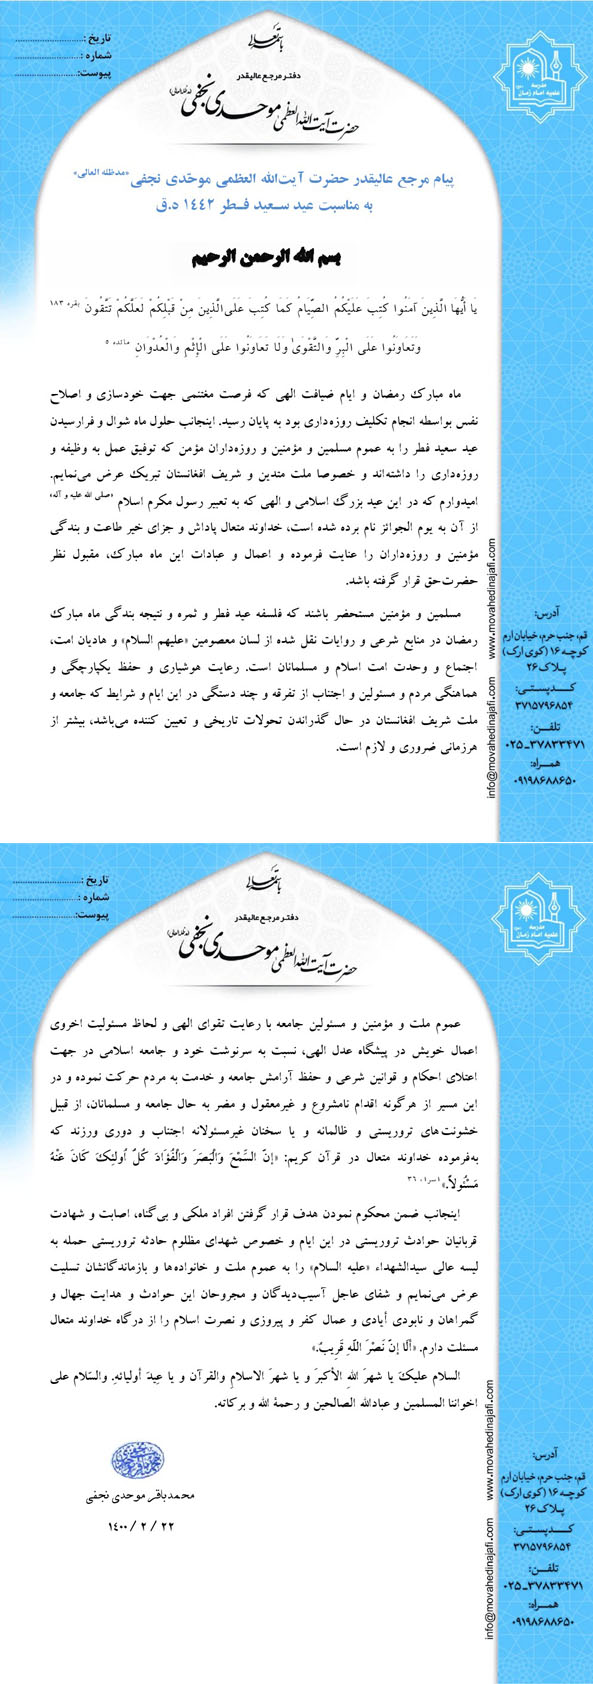 باسمه تعالی
تاریخ :
شماره :
پیوست:
مدرسه
علمیه امام زمان
دفتر مرجع عالیقدر
حضرت آیت الله العظمی موحدی نجفی
پیام مرجع عالیقدر حضرت آیت‌الله العظمی موحّدی نجفی «مدظله العالی»
به مناسبت عید سعید فطر ۱٤٤۲ ه.ق
بسم الله الرحمن الرحیم
یَا أَیُّهَا الَّذِینَ آمَنُوا کُتِبَ عَلَیْکُمُ الصِّیَامُ کَمَا کُتِبَ عَلَی‌الَّذِینَ مِنْ قَبْلِکُمْ لَعَلَّکُمْ تَتَّقُونَ بقره ۱۸۳
وَتَعَاوَنُوا عَلَی الْبِرِّ وَالتَّقْوَیٰ وَلَا تَعَاوَنُوا عَلَی الْإِثْمِ وَالْعُدْوَانِ مائده ٥
ماه مبارک رمضان و ایام ضیافت الهی که فرصت مغتنمی جهت خودسازی و اصلاح
نفس بواسطه انجام تکلیف روزه‌داری بود به پایان رسید. اینجانب حلول ماه شوال و فرارسیدن
عید سعید فطر را به عموم مسلمین و مؤمنین و روزه‌داران مؤمن که توفیق عمل به وظیفه و
روزه‌داری را داشته‌اند و خصوصا ملت متدین و شریف افغانستان تبریک عرض می‌نمایم.
امیدوارم که در این عید بزرگ اسلامی و الهی که به تعبیر رسول مکرم اسلام «صلی الله علیه و آله»
از آن به یوم الجوائز نام برده شده است، خداوند متعال پاداش و جزای خیر طاعت و بندگی
مؤمنین و روزه‌داران را عنایت فرموده و اعمال و عبادات این ماه مبارک، مقبول نظر
حضرت‌حق قرار گرفته باشد.
مسلمین و مؤمنین مستحضر باشند که فلسفه عید فطر و ثمره و نتیجه بندگی ماه مبارک
رمضان در منابع شرعی و روایات نقل شده از لسان معصومین «علیهم السلام» و هادیان امت،
اجتماع و وحدت امت اسلام و مسلمانان است. رعایت هوشیاری و حفظ یکپارچگی و
هماهنگی مردم و مسئولین و اجتناب از تفرقه و چند دستگی در این ایام و شرایط که جامعه و
ملت شریف افغانستان در حال گذراندن تحولات تاریخی و تعیین کننده می‌باشد، بیشتر از
هرزمانی ضروری و لازم است.
www.movahedinajafi.com
info@movahedinajafi.com
آدرس:
قم، جنب حرم، خیابان ارم
کوچه ۱۶ (کوی ارک)
پلاک ۲۶
کدپستی:
۳۷۱۵۷۹۶۸۵۴
تلفن:
۰۲۵-۳۷۸۳۳۴۷۱
همراه:
۰۹۱۹۸۶۸۸۶۵۰
باسمه تعالی
تاریخ :
شماره :
پیوست:
مدرسه
علمیه امام زمان
دفتر مرجع عالیقدر
حضرت آیت الله العظمی موحدی نجفی
عموم ملت و مؤمنین و مسئولین جامعه با رعایت تقوای الهی و لحاظ مسئولیت اخروی
اعمال خویش در پیشگاه عدل الهی، نسبت به سرنوشت خود و جامعه اسلامی در جهت
اعتلای احکام و قوانین شرعی و حفظ آرامش جامعه و خدمت به مردم حرکت نموده و در
این مسیر از هرگونه اقدام نامشروع و غیرمعقول و مضر به حال جامعه و مسلمانان، از قبیل
خشونت‌های تروریستی و ظالمانه و یا سخنان غیرمسئولانه اجتناب و دوری ورزند که
به‌فرموده خداوند متعال در قرآن کریم: «إِنَّ السَّمْعَ وَالْبَصَرَ وَالْفُؤَادَ کُلٌّ اُولئِکَ کَانَ عَنْهُ
مَسْئُولاً.» اسراء ۳٦
اینجانب ضمن محکوم نمودن هدف قرار گرفتن افراد ملکی و بی‌گناه، اصابت و شهادت
قربانیان حوادث تروریستی در این ایام و خصوص شهدای مظلوم حادثه تروریستی حمله به
لیسه عالی سیدالشهداء «علیه السلام» را به عموم ملت و خانواده‌ها و بازماندگانشان تسلیت
عرض می‌نمایم و شفای عاجل آسیب‌دیدگان و مجروحان این حوادث و هدایت جهال و
گمراهان و نابودی أیادی و عمال کفر و پیروزی و نصرت اسلام را از درگاه خداوند متعال
مسئلت دارم. «أَلَا إِنَّ نَصْرَ اللَّهِ قَرِیبٌ.»
السلام علیکَ یا شهرَ اللهِ الأکبرَ و یا شهرَ الاسلامِ والقرآن و یا عِیدَ أولیائهِ. والسّلام علی
اخواننا المسلمین و عبادالله الصالحین و رحمة الله و برکاته.
محمدباقر موحدی نجفی
۱٤۰۰ / ۲ / ۲۲
www.movahedinajafi.com
info@movahedinajafi.com
آدرس:
قم، جنب حرم، خیابان ارم
کوچه ۱۶ (کوی ارک)
پلاک ۲۶
کدپستی:
۳۷۱۵۷۹۶۸۵۴
تلفن:
۰۲۵-۳۷۸۳۳۴۷۱
همراه:
۰۹۱۹۸۶۸۸۶۵۰